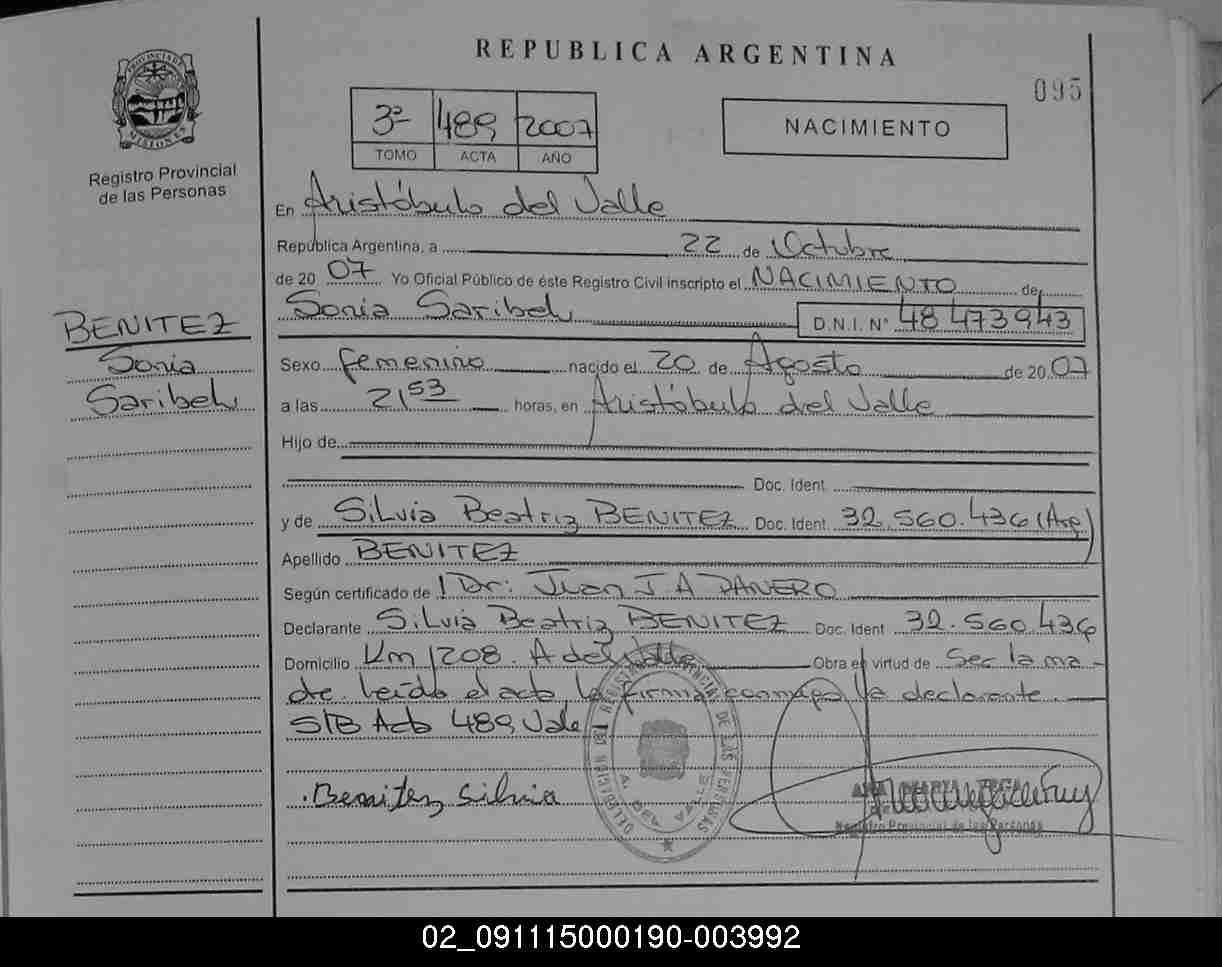 REPUBLICA ARGENTINA
095
PROVINCIA DE MISIONES
Registro Provincial
de las Personas
3ª 489 2007
TOMO ACTA AÑO
NACIMIENTO
En Aristóbulo del Valle
República Argentina, a 22 de Octubre
de 20 07 Yo Oficial Público de éste Registro Civil inscripto el NACIMIENTO de
Sonia Saribel D.N.I. N° 48 473943
BENITEZ
Sonia
Saribel
Sexo femenino nacido el 20 de Agosto de 20 07
a las 21 53 horas, en Aristóbulo del Valle
Hijo de
Doc. Ident.
y de Silvia Beatriz BENITEZ Doc. Ident. 32.560.436 (Arg)
Apellido BENITEZ
Según certificado de Dr: Juan J. A DANERO
Declarante Silvia Beatriz BENITEZ Doc. Ident 32.560.436
Domicilio Km 1208. A del Valle Obra en virtud de Ser la ma-
dre. leído el acta la firma conmigo la declarante.
S/B Acta 489 Vale
Benitez Silvia
DELEGACION DEL REGISTRO PROVINCIAL DE LAS PERSONAS
Registro Provincial de las Personas
02_091115000190-003992